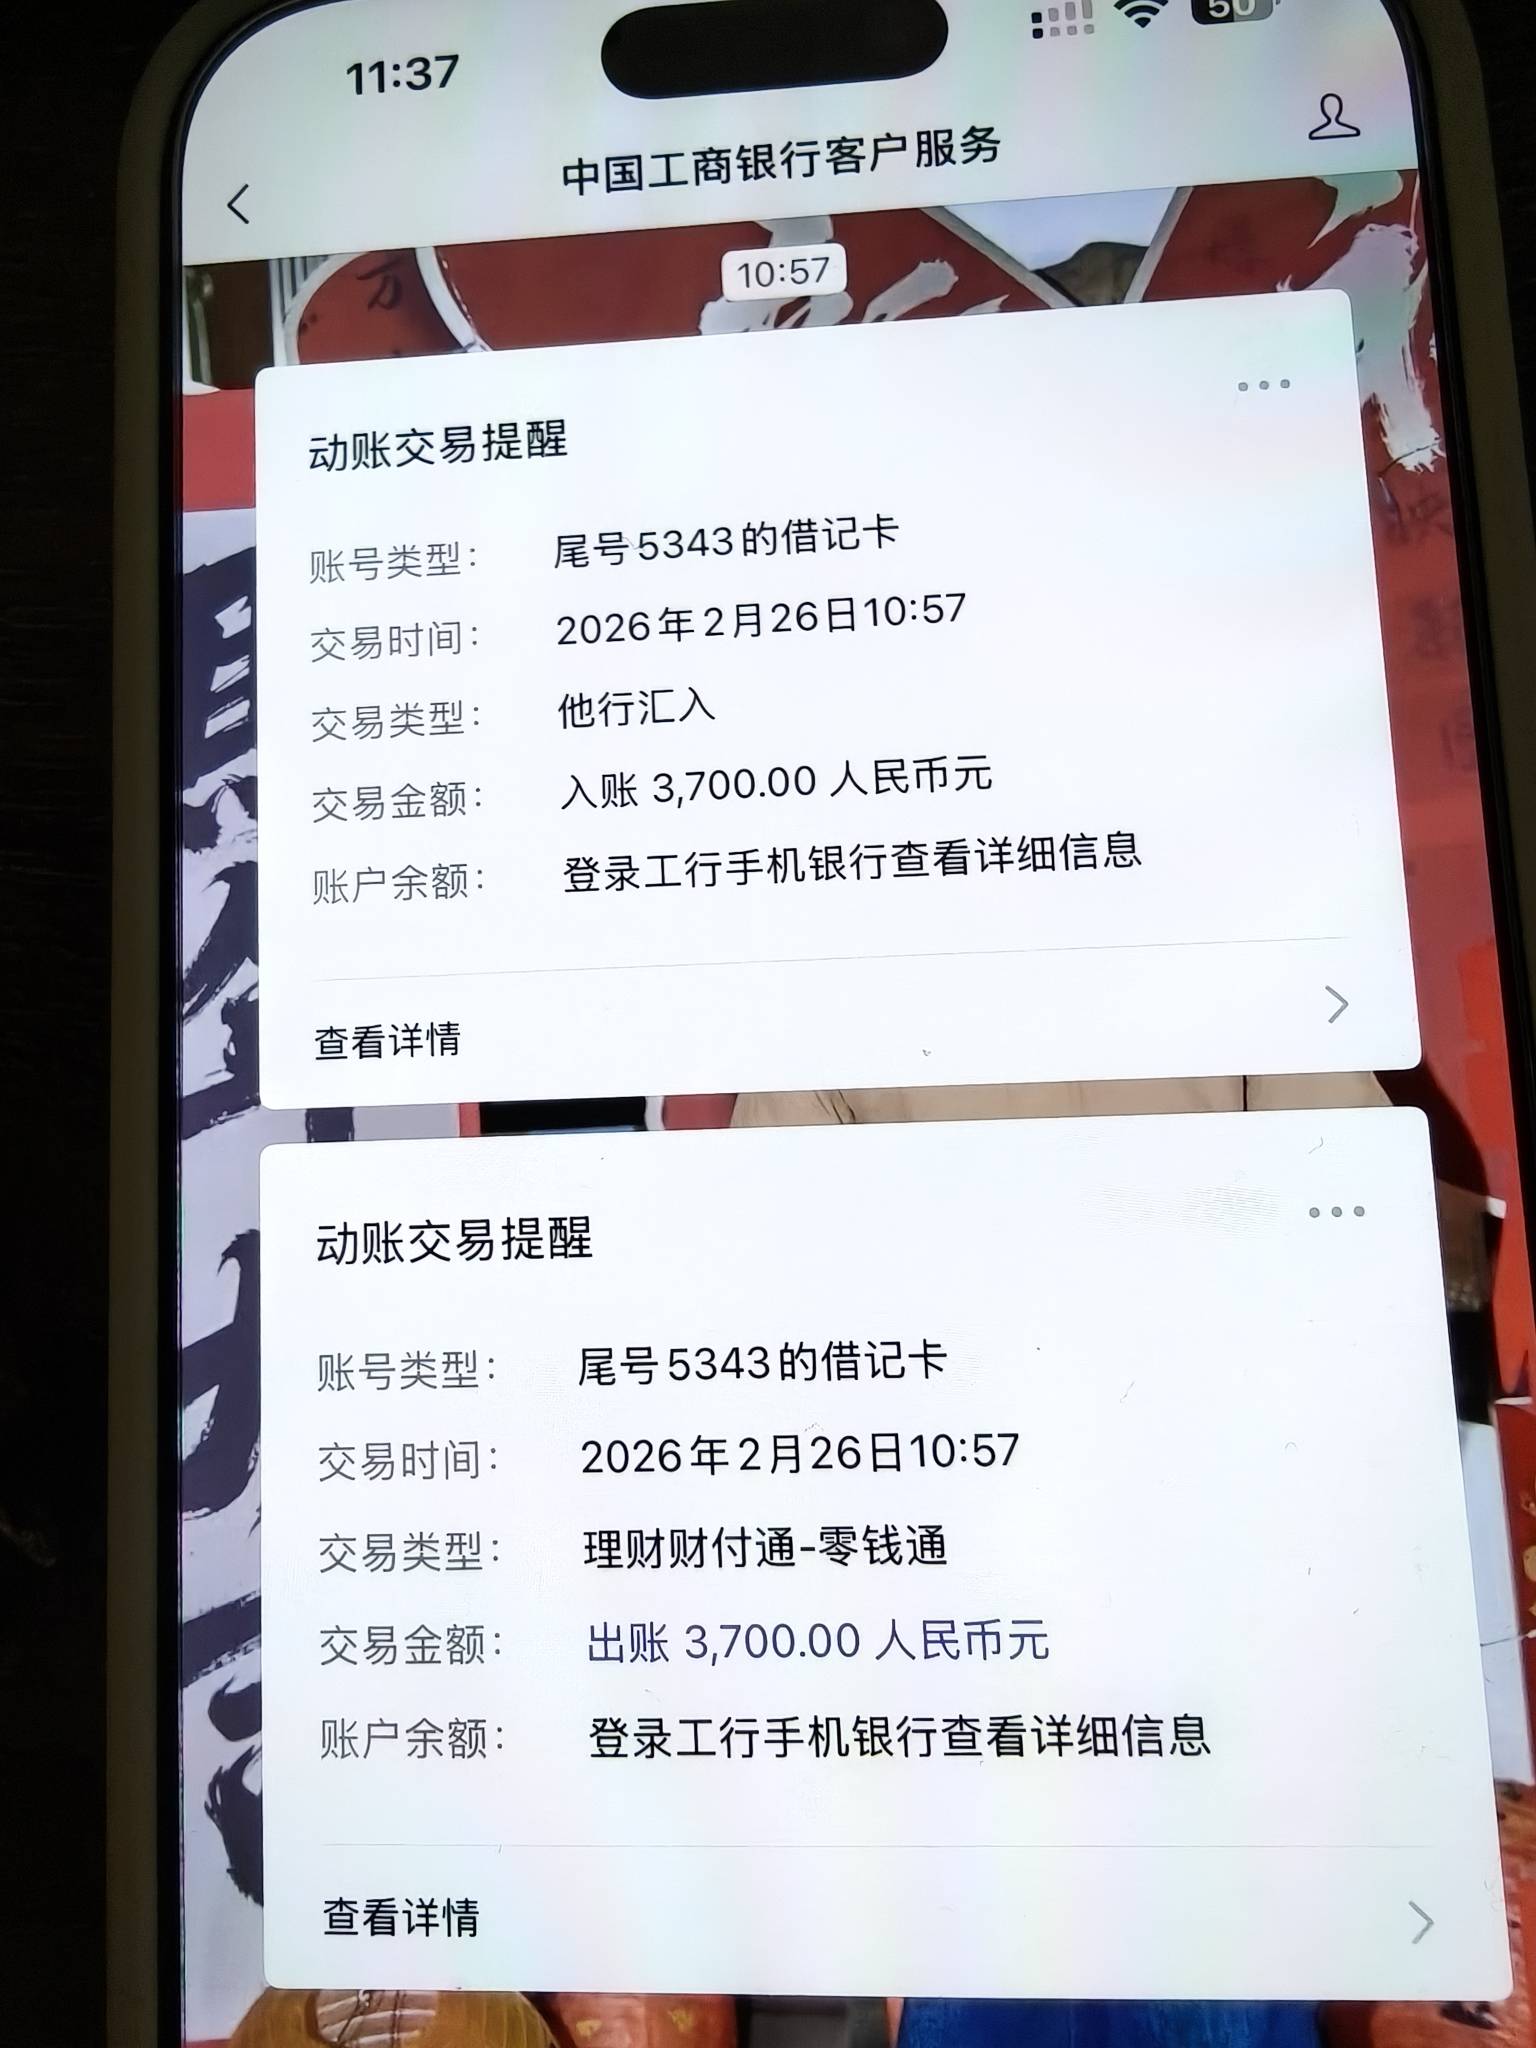 11:37
50
中国工商银行客户服务
10:57
动账交易提醒
账号类型： 尾号5343的借记卡
交易时间： 2026年2月26日10:57
交易类型： 他行汇入
交易金额： 入账 3,700.00 人民币元
账户余额： 登录工行手机银行查看详细信息
查看详情
动账交易提醒
账号类型： 尾号5343的借记卡
交易时间： 2026年2月26日10:57
交易类型： 理财财付通-零钱通
交易金额： 出账 3,700.00 人民币元
账户余额： 登录工行手机银行查看详细信息
查看详情